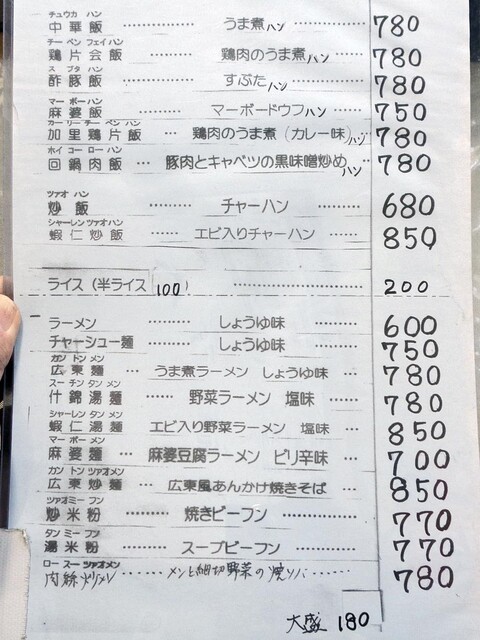 チュウカ ハン
中華飯 ……… うま煮ハン 780
チー ペン フェイ ハン
鶏片会飯 ……… 鶏肉のうま煮ハン 780
ス ブタ ハン
酢豚飯 ……… すぶたハン 780
マー ボー ハン
麻婆飯 ……… マーボードウフハン 750
カーリー チー ペン ハン
加里鶏片飯 … 鶏肉のうま煮（カレー味）ハン 780
ホイ コー ロー ハン
回鍋肉飯 … 豚肉とキャベツの黒味噌炒めハン 780
ツァオ ハン
炒飯 ……… チャーハン ……… 680
シャーレン ツァオハン
蝦仁炒飯 ……… エビ入りチャーハン ……… 850
ライス（半ライス 100） ……… 200
ラーメン ……… しょうゆ味 ……… 600
チャーシュー麺 ……… しょうゆ味 ……… 750
カン トン メン
広東麺 … うま煮ラーメン しょうゆ味 … 780
スー チン タン メン
什錦湯麺 …… 野菜ラーメン 塩味 …… 780
シャーレン タン メン
蝦仁湯麺 エビ入り野菜ラーメン 塩味 … 850
マー ボー メン
麻婆麺 … 麻婆豆腐ラーメン ピリ辛味 … 700
カン トン ツァオメン
広東炒麺 … 広東風あんかけ焼きそば … 850
ツァオミー フン
炒米粉 ……… 焼きビーフン ……… 770
タン ミー フン
湯米粉 ……… スープビーフン ……… 770
ロー スー ツァオメン
肉絲炒メン …… メンと細切野菜の焼ソバ …… 780
大盛 180